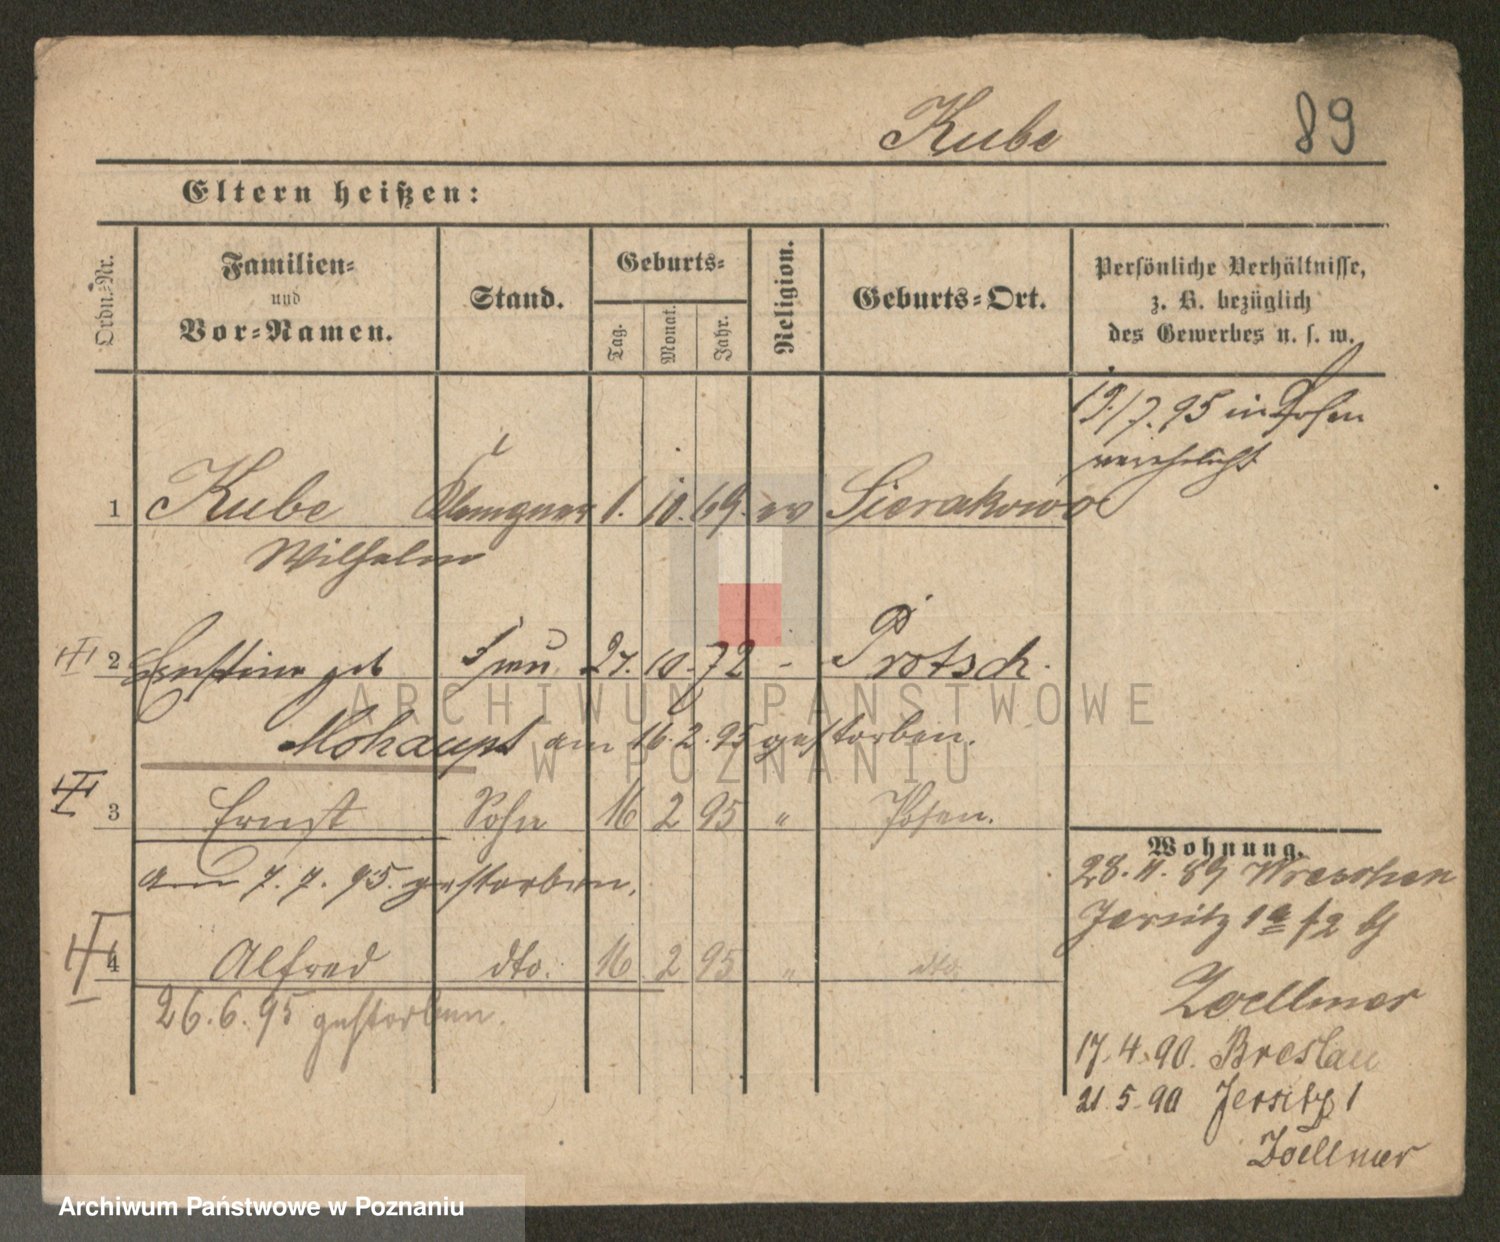 Kube
89
Eltern heißen:
Ordn.-Nr.
Familien-
und
Vor-Namen.
Stand.
Geburts-
Tag.
Monat.
Jahr.
Religion.
Geburts-Ort.
Persönliche Verhältnisse,
z. B. bezüglich
des Gewerbes u. s. w.
19./7.95 in Posen
verehelicht
1 Kube Klempner 1. 10. 69. ev Sierakowo
Wilhelm
2 Ernstine geb Frau 27. 10. 72 - Protsch.
Mohaupt am 16.2.95 gestorben.
3 Ernst Sohn 16 2 95 " Posen.
am 7.7.95. gestorben.
4 Alfred dto. 16 2 95 " dto
26.6.95 gestorben.
Wohnung.
28.11.89 Wreschen
Jersitz 1a /2 b
Zoellmer
17.4.90. Breslau
21.5.90 Jersitz 1
Zoellmer
ARCHIWUM PAŃSTWOWE
W POZNANIU
Archiwum Państwowe w Poznaniu